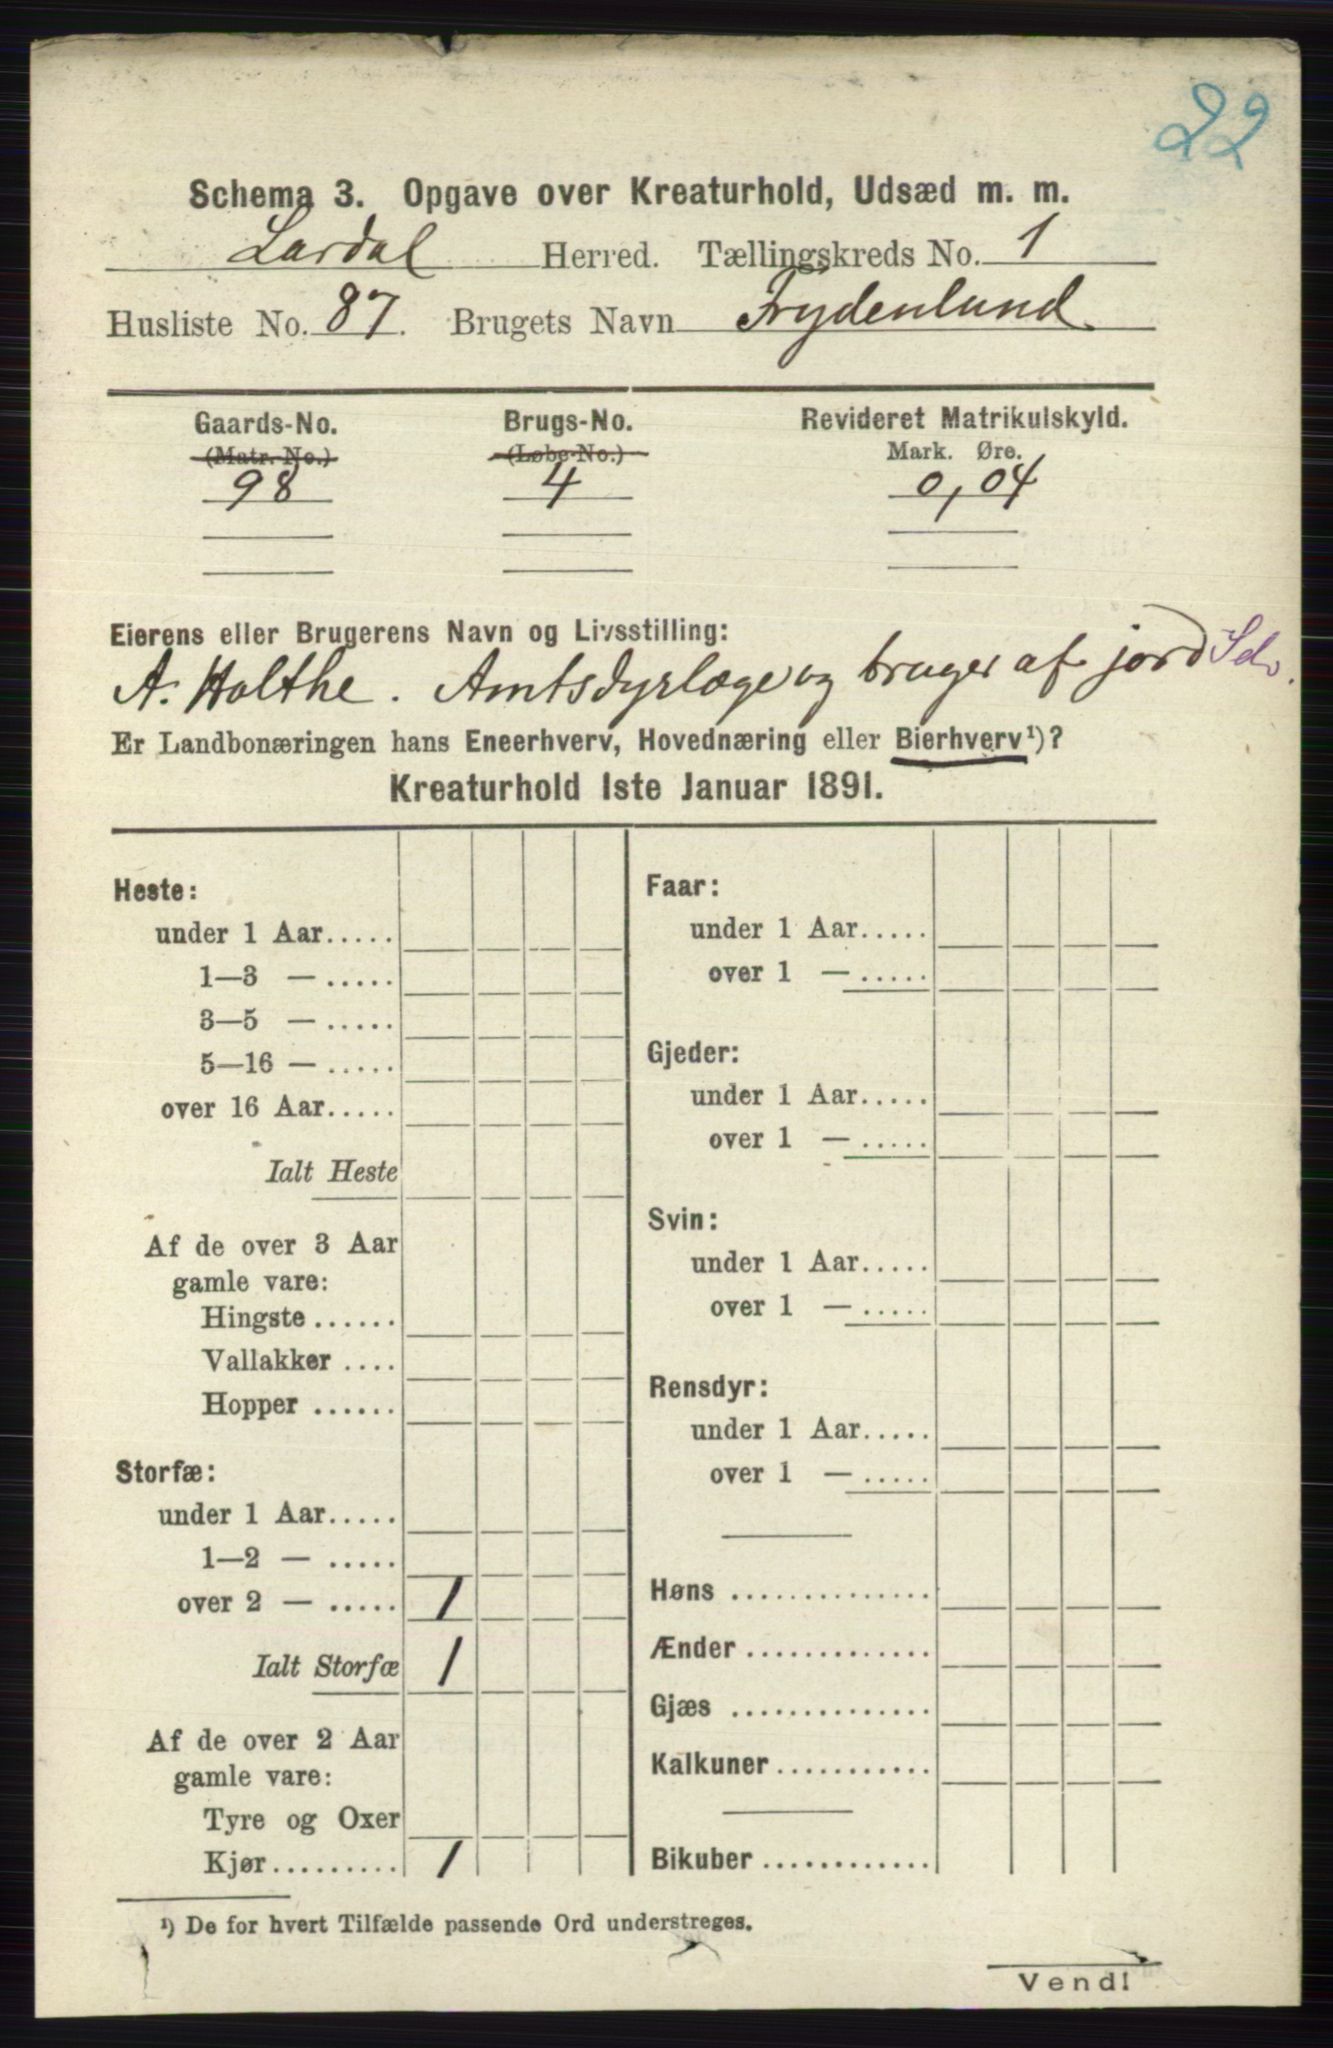 22
Schema 3. Opgave over Kreaturhold, Udsæd m. m.
Lardal Herred. Tællingskreds No. 1
Husliste No. 87. Brugets Navn Frydenlund
Gaards-No. Brugs-No. Revideret Matrikulskyld.
(Matr.-No.) (Løbe-No.) Mark. Øre.
98 4 0,04
Eierens eller Brugerens Navn og Livsstilling:
A. Holthe. Amtsdyrlæge og bruger af jord
Er Landbonæringen hans Eneerhverv, Hovednæring eller Bierhverv¹)?
Kreaturhold 1ste Januar 1891.
Heste:
under 1 Aar.....
1—3 — .....
3—5 — .....
5—16 — .....
over 16 Aar.....
Ialt Heste
Af de over 3 Aar
gamle vare:
Hingste ......
Vallakker ....
Hopper ......
Storfæ:
under 1 Aar.....
1—2 — .....
over 2 — ..... 1
Ialt Storfæ 1
Af de over 2 Aar
gamle vare:
Tyre og Oxer
Kjør......... 1
Faar:
under 1 Aar.....
over 1 — .....
Gjeder:
under 1 Aar.....
over 1 — .....
Svin:
under 1 Aar.....
over 1 — .....
Rensdyr:
under 1 Aar.....
over 1 — .....
Høns ..............
Ænder .............
Gjæs ..............
Kalkuner ...........
Bikuber ............
¹) De for hvert Tilfælde passende Ord understreges.
Vend!